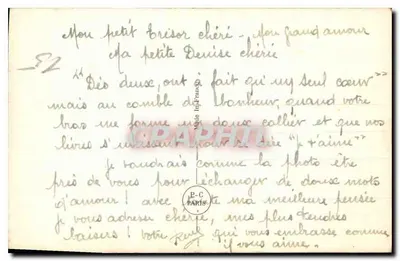 Mon petit trésor chéri - Mon grand amour
Ma petite Denise chérie
52
"Dès deux, ont à fait qu'un seul cœur"
mais au comble du bonheur, quand votre
bras me forme un doux collier et que nos
lèvres s'unissent pour se dire "je t'aime"
je voudrais comme la photo être
près de vous pour échanger de doux mots
d'amour ! avec ma meilleure pensée
je vous adresse chérie, mes plus tendres
baisers ! votre qui vous embrasse comme
il vous aime.
P-C
PARIS
CPAPHIL